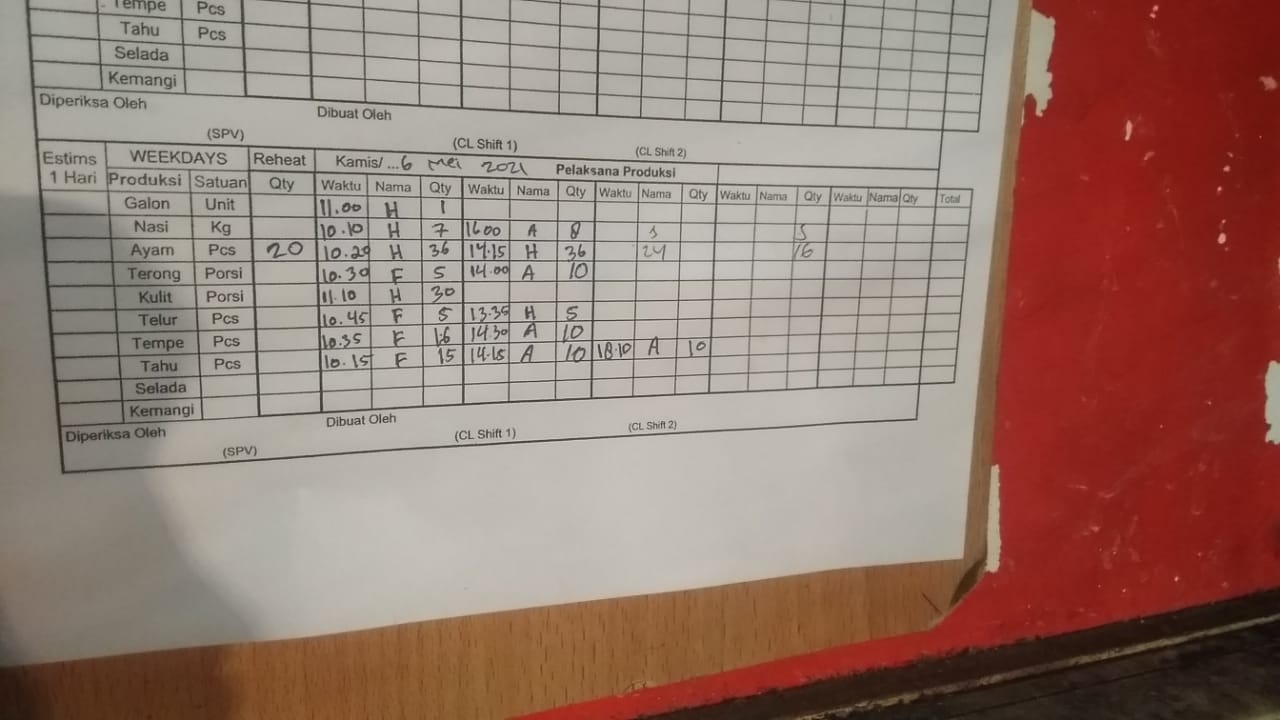 Tempe Pcs
Tahu Pcs
Selada
Kemangi
Diperiksa Oleh Dibuat Oleh
(SPV) (CL Shift 1) (CL Shift 2)
Estims WEEKDAYS Reheat Kamis/ ...6 Mei 2021 Pelaksana Produksi
1 Hari Produksi Satuan Qty Waktu Nama Qty Waktu Nama Qty Waktu Nama Qty Waktu Nama Qty Waktu Nama Qty Total
Galon Unit 11.00 H 1
Nasi Kg 10.10 H 7 1600 A 8 5
Ayam Pcs 20 10.20 H 36 17.15 H 36 24 16
Terong Porsi 10.30 F 5 14.00 A 10
Kulit Porsi 11.10 H 30
Telur Pcs 10.45 F 5 13.35 H 5
Tempe Pcs 10.35 F 16 14.30 A 10
Tahu Pcs 10.15 F 15 14.15 A 10 18.10 A 10
Selada
Kemangi
Diperiksa Oleh Dibuat Oleh
(SPV) (CL Shift 1) (CL Shift 2)